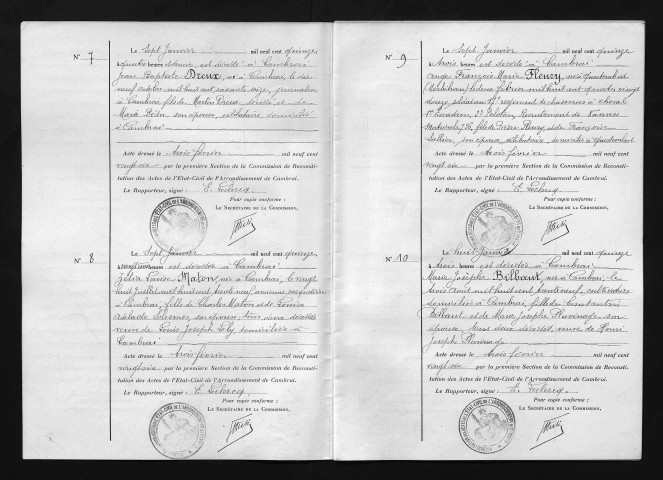 N° 7
Le Sept Janvier mil neuf cent quinze
à quatre heures est décédé à Cambrai
Jean Baptiste Dreux, né à Cambrai, le dix
neuf octobre mil huit cent soixante seize, journalier
à Cambrai, fils de Martin Dreux, décédé et de
Marie Bélin, son épouse, célibataire domicilié
à Cambrai
Acte dressé le trois février mil neuf cent
vingt six par la première Section de la Commission de Reconsti-
tution des Actes de l'Etat-Civil de l'Arrondissement de Cambrai.
Le Rapporteur, signé : E. Leclercq
Pour copie conforme :
Le Secrétaire de la Commission,
N° 8
Le Sept Janvier mil neuf cent quinze
heures est décédée à Cambrai
Louise Maton, née à Cambrai, le vingt
huit juillet mil huit cent trente neuf,
à Cambrai, fille de Charles Maton et de Louise
Adélaïde Solesmes, son épouse, tous deux décédés
veuve de Louis Joseph Ely domiciliée à
Cambrai
Acte dressé le trois février mil neuf cent
vingt six par la première Section de la Commission de Reconsti-
tution des Actes de l'Etat-Civil de l'Arrondissement de Cambrai.
Le Rapporteur, signé : E. Leclercq
Pour copie conforme :
Le Secrétaire de la Commission,
N° 9
Le Sept Janvier mil neuf cent quinze
à trois heures est décédé à Cambrai
Ange François Marie Fleury, né à
(Morbihan) le deux février mil huit cent quatre vingt
douze, soldat au régiment de chasseurs à cheval
Escadron, 2e Peloton, Recrutement de Vannes
Matricule 736, fils de Pierre Fleury et de Françoise
son épouse, célibataire, domicilié à
Acte dressé le trois février mil neuf cent
vingt six par la première Section de la Commission de Reconsti-
tution des Actes de l'Etat-Civil de l'Arrondissement de Cambrai.
Le Rapporteur, signé : E. Leclercq
Pour copie conforme :
Le Secrétaire de la Commission,
N° 10
Le huit Janvier mil neuf cent quinze
à trois heures est décédée à Cambrai
Marie Josèphe Bilbaut, née à Cambrai le
trois août mil huit cent trente neuf,
domiciliée à Cambrai, fille de Constantin
Bilbaut, et de Marie Josèphe Pluvinage son
épouse, tous deux décédés, veuve de Henri
Joseph Pluvinage
Acte dressé le trois février mil neuf cent
vingt six par la première Section de la Commission de Reconsti-
tution des Actes de l'Etat-Civil de l'Arrondissement de Cambrai.
Le Rapporteur, signé : E. Leclercq
Pour copie conforme :
Le Secrétaire de la Commission,